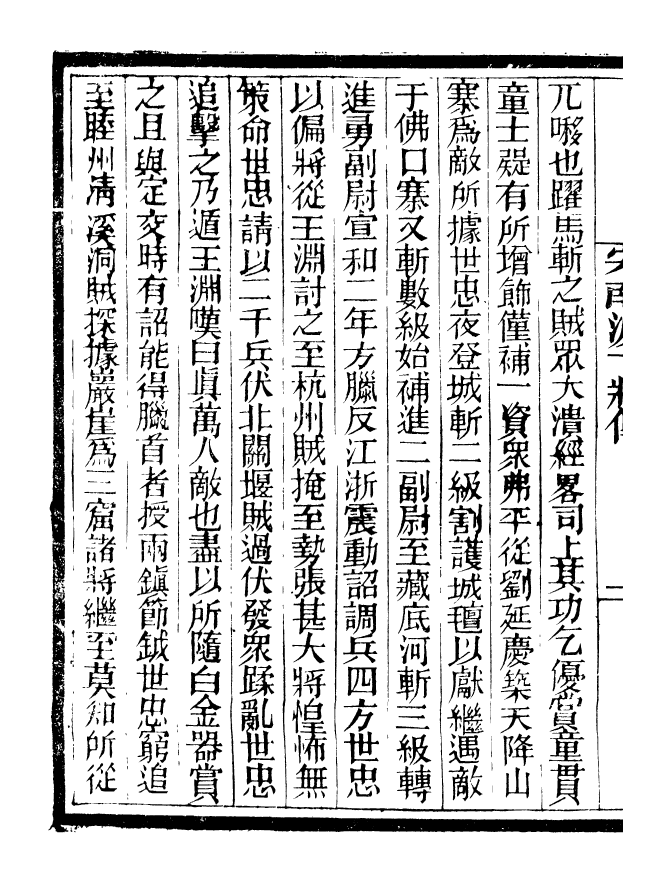 兀㖇也躍馬斬之賊眾大潰經畧司上其功乞優賞童貫
童士疑有所增飾僅補一資衆弗平從劉延慶築天降山
寨爲敵所據世忠夜登城斬二級割護城氊以獻繼遇敵
于佛口寨又斬數級始補進二副尉至藏底河斬三級轉
進勇副尉宣和二年方臘反江浙震動詔調兵四方世忠
以偏將從王淵討之至杭州賊掩至勢張甚大將惶怖無
策命世忠請以二千兵伏北關堰賊過伏發衆蹂亂世忠
追擊之乃遁王淵嘆曰眞萬人敵也盡以所隨白金器賞
之且與定交時有詔能得臘首者授兩鎮節鉞世忠窮追
至睦州淸溪洞賊探據巖崖爲三窟諸將繼至莫知所從